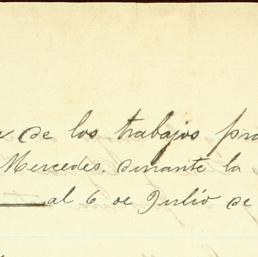 de los trabajos
Mercedes, durante la
al 6 de Julio de